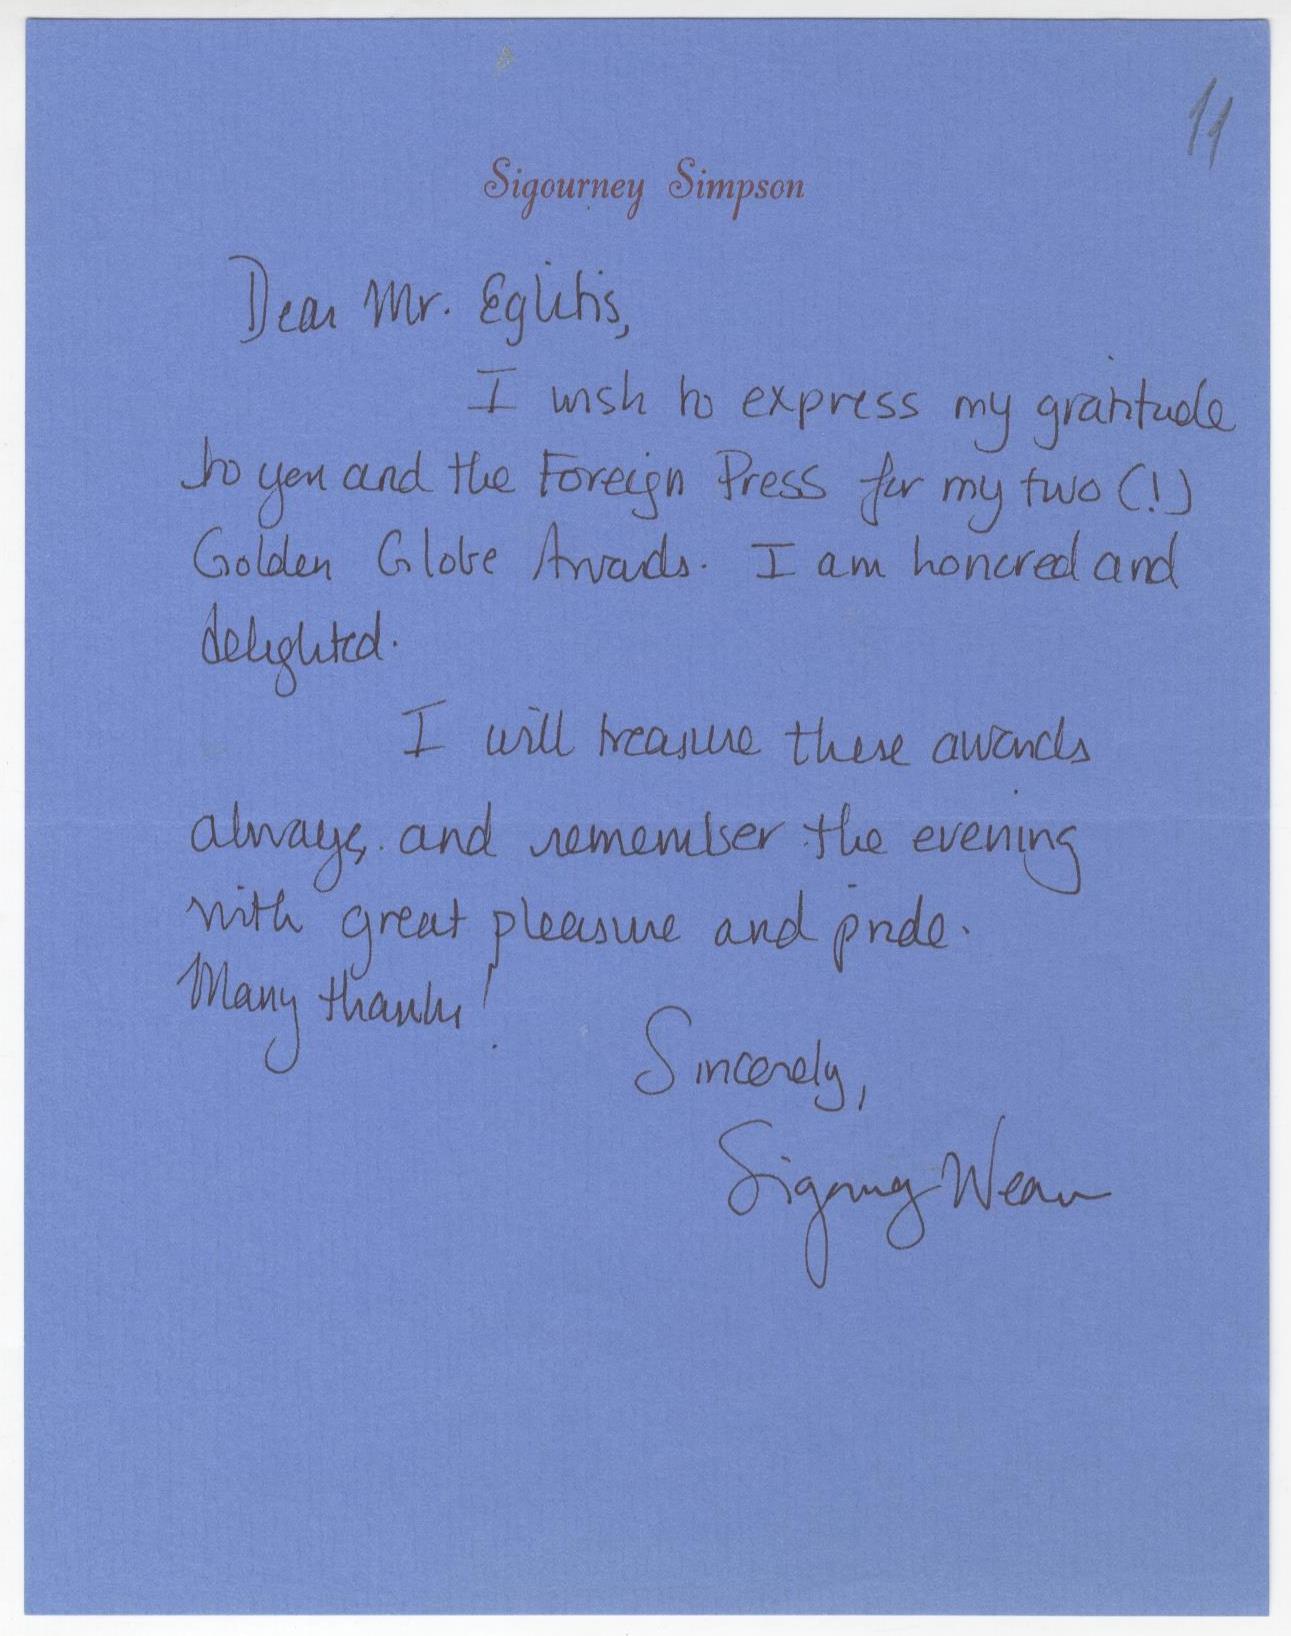 11
Sigourney Simpson
Dear Mr. Eglitis,
I wish to express my gratitude
to you and the Foreign Press for my two (!)
Golden Globe Awards. I am honored and
delighted.
I will treasure these awards
always, and remember the evening
with great pleasure and pride.
Many thanks!
Sincerely,
Sigourney Weaver